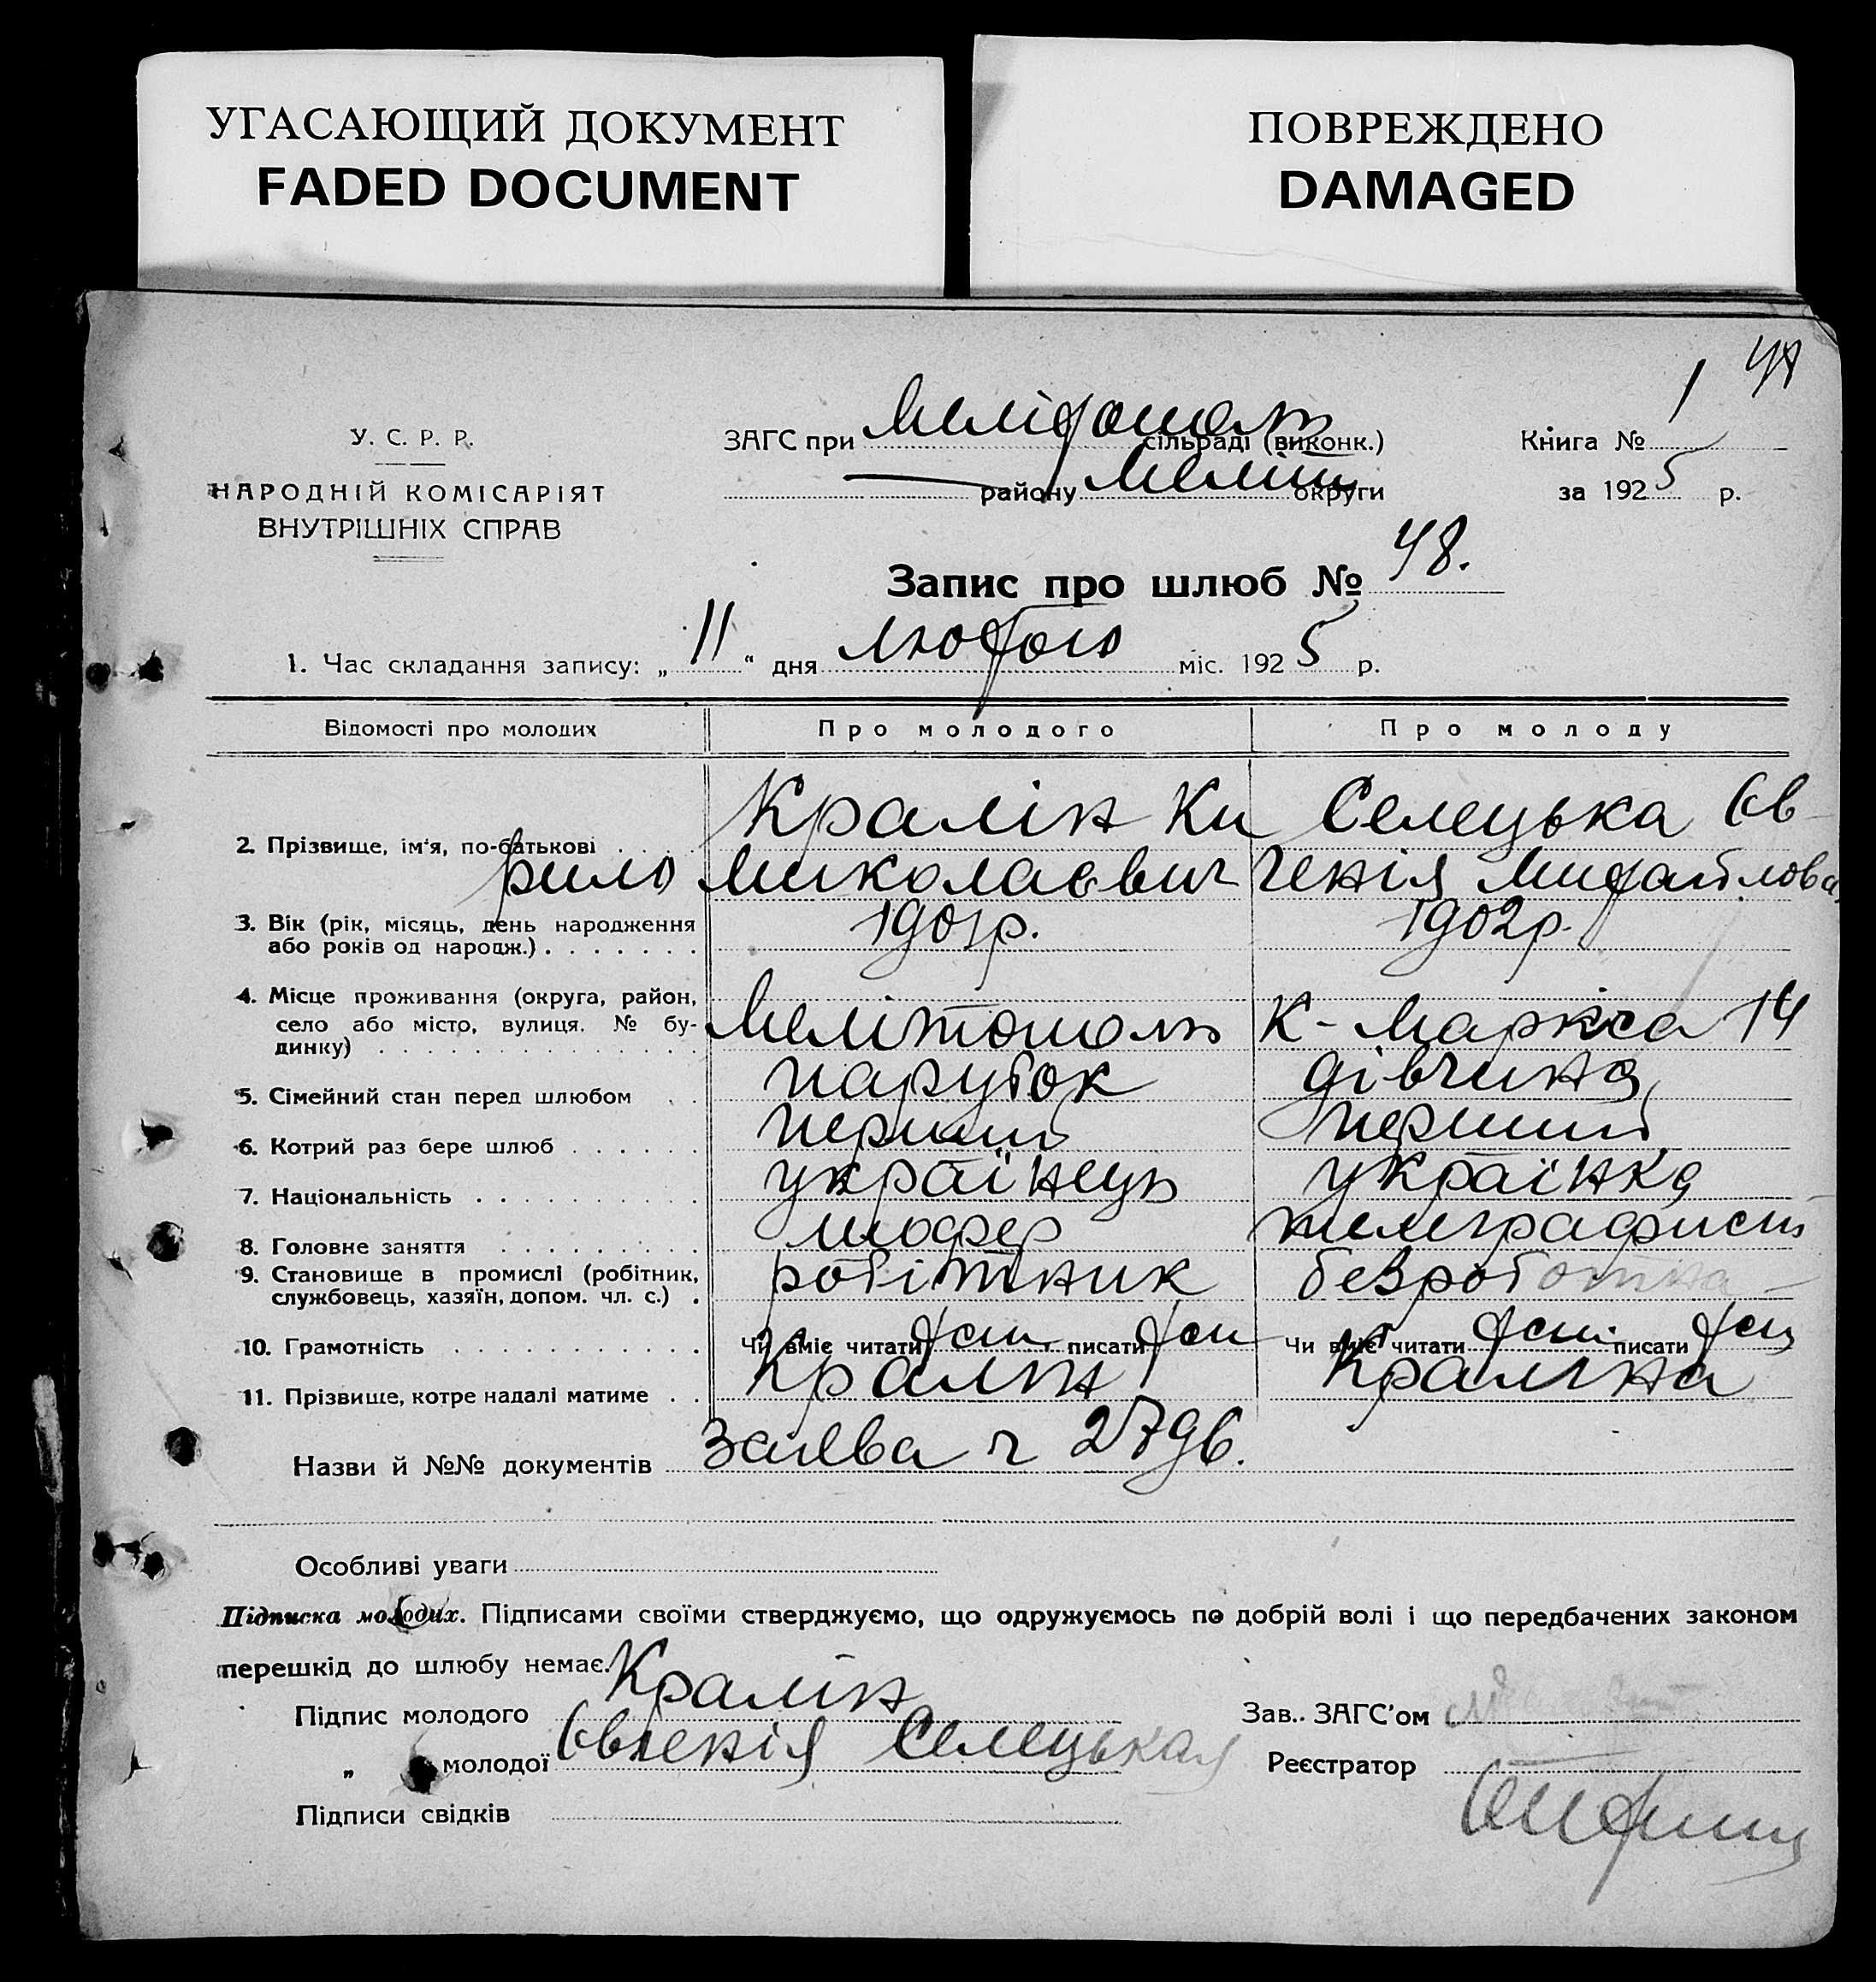 УГАСАЮЩИЙ ДОКУМЕНТ
FADED DOCUMENT
ПОВРЕЖДЕНО
DAMAGED
У. С. Р. Р.
НАРОДНІЙ КОМІСАРІЯТ
ВНУТРІШНІХ СПРАВ
ЗАГС при Мелітополь сільраді (виконк.)
району Меліт округи
Книга № 1
за 1925 р.
Запис про шлюб № 48.
1. Час складання запису: „ 11 “ дня лютого міс. 1925 р.
Відомості про молодих Про молодого Про молоду
Кралін Ки Селецька Єв
2. Прізвище, ім'я, по-батькові . . . .
рило Миколаєвич генія Михайлова
3. Вік (рік, місяць, день народження 1901р. 1902р.
або років од народж.) . . . . . . .
4. Місце проживання (округа, район,
село або місто, вулиця. № бу- Мелітополь К-Маркса 14
динку) . . . . . . . . . . . . . .
5. Сімейний стан перед шлюбом . . парубок дівчина
6. Котрий раз бере шлюб . . . . . . перший перший
7. Національність . . . . . . . . . . українець українка
8. Головне заняття . . . . . . . . . шофер телеграфист
9. Становище в промислі (робітник, робітник безроботна
службовець, хазяїн, допом. чл. с.) .
10. Грамотність . . . . . . . . . . . Чи вміє читати писати Чи вміє читати писати
11. Прізвище, котре надалі матиме . . Кралін Краліна
Назви й №№ документів Заява ч 2796.
Особливі уваги
Підписка молодих. Підписами своїми стверджуємо, що одружуємось по добрій волі і що передбачених законом
перешкід до шлюбу немає.
Підпис молодого Кралін
„ молодої Євгенія Селецькая
Підписи свідків
Зав.. ЗАГС'ом
Реєстратор